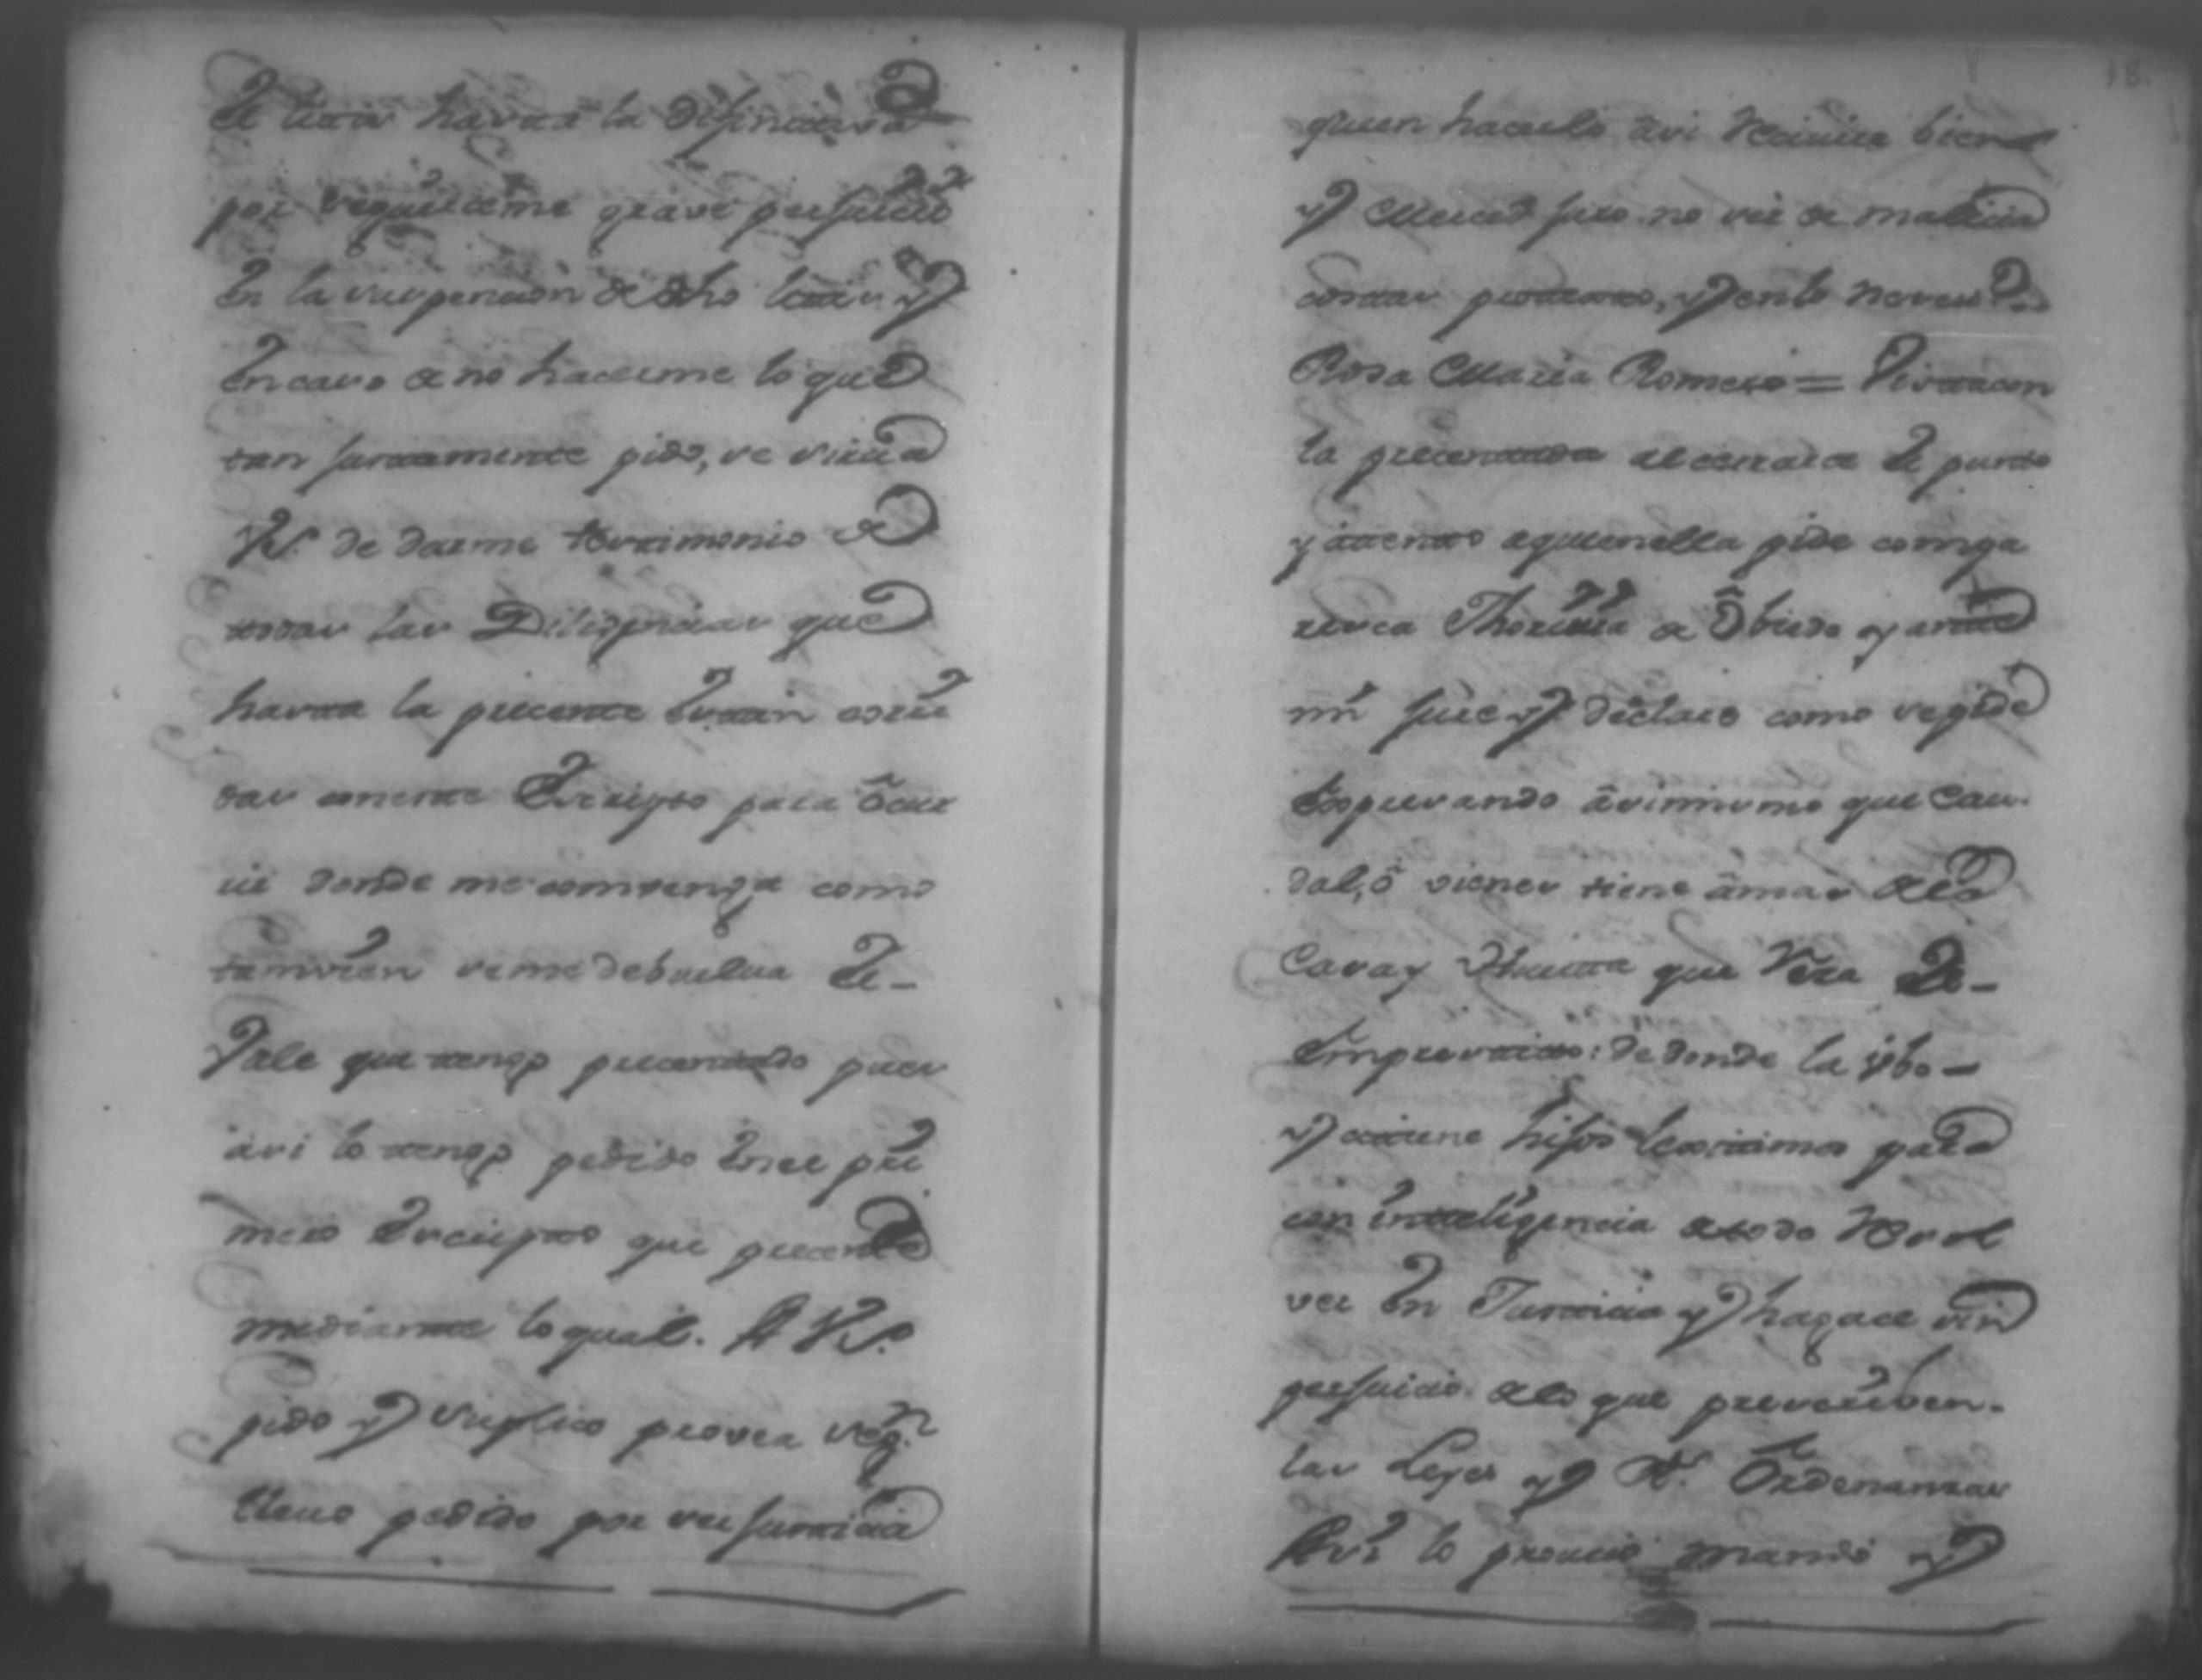 el litis hasta la difinicion
por seguirseme grave persuicio
En la suspencion de dho litis y
En caso de no hacerme lo que
tan justamente pido, se sirva
VS. de darme testimonio de
todas las Diligencias que
hasta la precente Estan corri
das con este Escripto para ôcur
rir donde me comvenga como
tamvien se me debuelva El
Vale que tengo precentado pues
asi lo tengo pedido En el pri
mero Escripto que precente
mediante lo qual. A VS.
pido y suplico provea segn.
llevo pedido por ser justicia
18.
quien hacerlo âsi Recivire bien
y Merced juro no ser de malicia
costas protexto, y en lo Neces.o
Rosa Maria Romero = Vista con
la precentada al alcalde de
y atento a quien ella pide comga
resca Thoriuia de Ôbiedo y ante
mi jure y declare como se pide
Expresando âsimismo que Cau-
dal, ô vienes tiene âmas de la
Casa y Huerta que Reza
Emprestito: de donde la ubo
y si tiene hijos lexitimos para
con inteligencia de todo Resol
ver En Justicia y hagace sin
persuicio de lo que prescriben
las Leyes y Rs. Ôrdenanzas
Asi lo proveio mando y